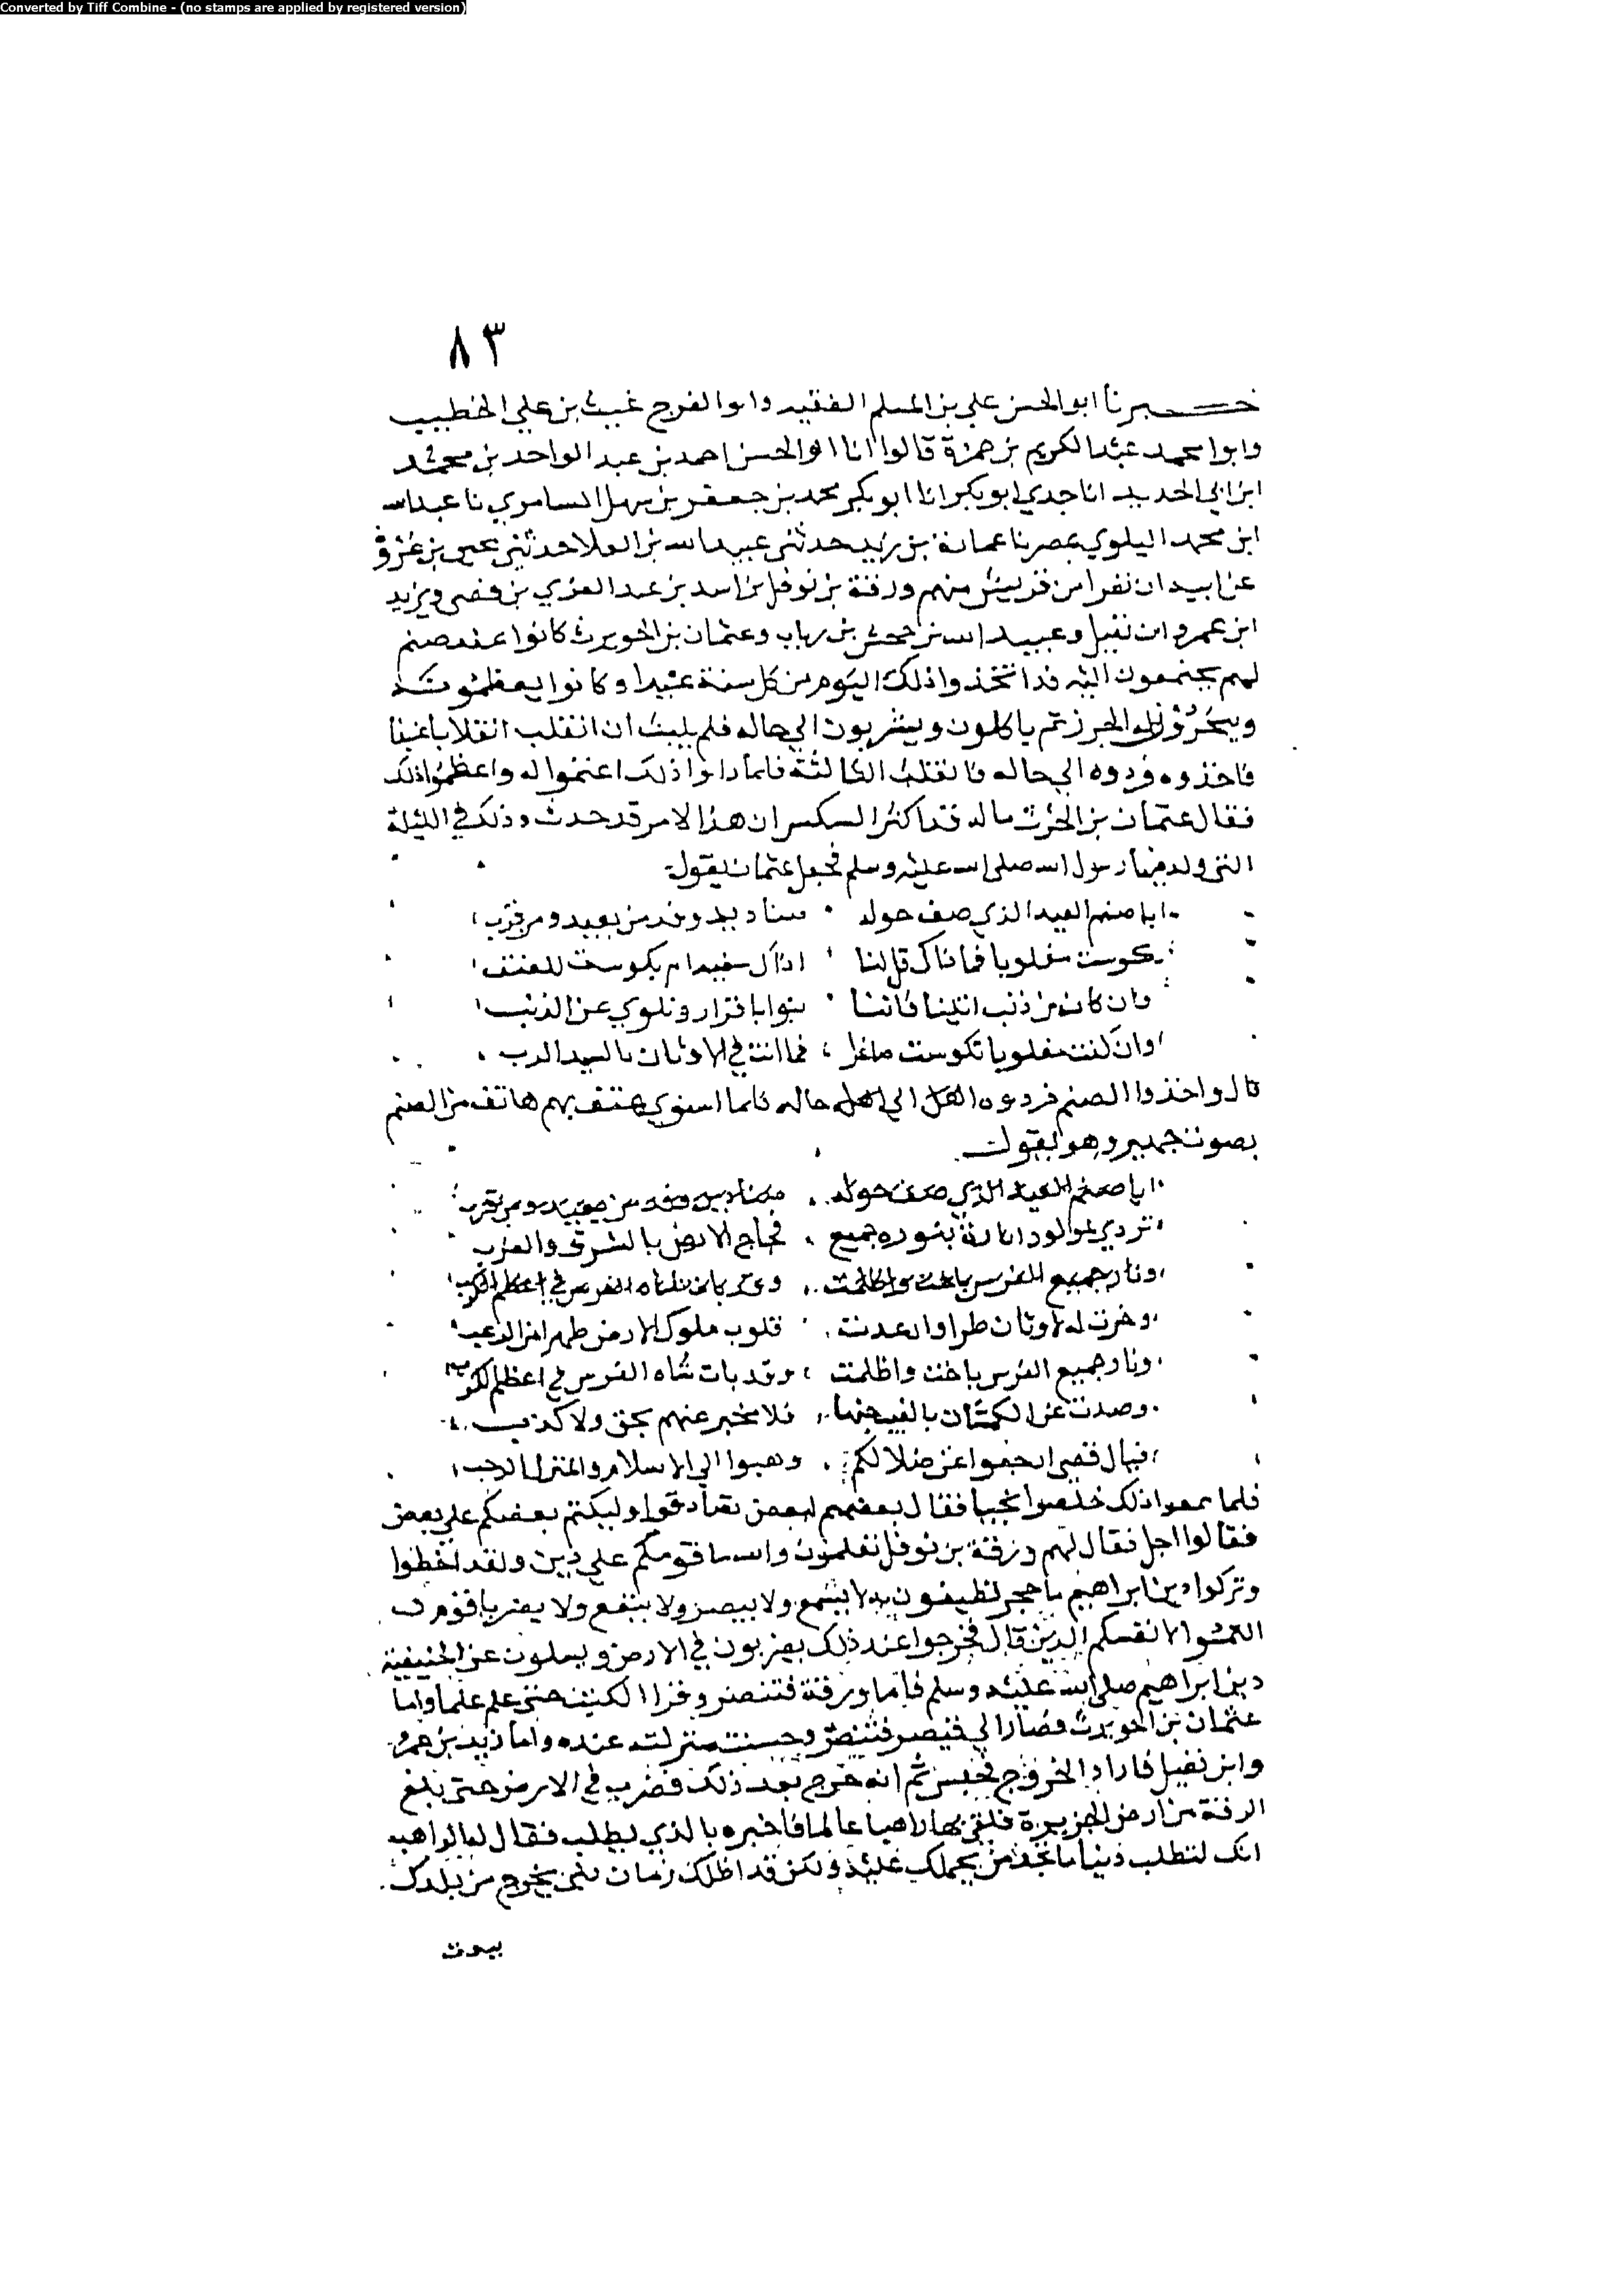 Converted by Tiff Combine - (no stamps are applied by registered version)
٨٣
خبرنا ابو الحسن علي بن المسلم الفقيه وابو الفرج غيث بن علي الخطيب
وابوا محمد عبد الكريم بن حمزة قالوا انا ابو الحسن احمد بن عبد الواحد بن محمد
ابن ابي الحديد انا جدي ابو بكر انا ابو بكر محمد بن جعفر بن سهل السامري نا عبد الله
ابن محمد البلوي بمصر نا عمارة بن زيد حدثني عبيد الله بن العلا حدثني يحيى بن عروة
عن ابيه ان نفرا من قريش منهم ورقة بن نوفل بن اسد بن عبد العزي بن قصي وزيد
ابن عمرو ابن نفيل وعبيد الله بن جحش بن رياب وعثمان بن الحويرث كانوا عند صنم
لهم يجتمعون اليه قد اتخذوا ذلك اليوم من كل سنة عيدا وكانوا يعظمونه
وينحرون له الجزر ثم ياكلون ويشربون الي حاله فلم يلبث ان انقلب انقلابا عنيفا
فاخذوه فردوه الي حاله فانقلب الثالثة فلما راوا ذلك اغتموا له واعظموا ذلك
فقال عثمان بن الحرث ماله قد اكثر التنكس ان هذا لامر قد حدث وذلك في الليلة
التي ولد فيها رسول الله صلى الله عليه وسلم فجعل عثمان يقول
ايا صنم العيد الذي صف حوله صناديد وفد من بعيد ومن قرب
تكوست مغلوبا فما ذاك قل لنا
وان كان من ذنب اتينا فاننا نبوا باقرار ونلوي عن الذنب
وان كنت مغلوبا تكوست صاغرا فما انت في الاوثان بالسيد الرب
قال واخذوا الصنم فردوه الي حاله فلما استوي هتف بهم هاتف من الصنم
بصوت جهير وهو يقول
ايا صنم العيد الذي صف حوله صناديد وفد من بعيد ومن قرب
تردي لمولود انارت بنوره جميع فجاج الارض بالشرق والغرب
ونار جميع الفرس باخت واظلمت وقد بات شاه الفرس في اعظم الكرب
وخرت له الاوثان طرا وارعدت قلوب ملوك الارض طهرا من الرعب
ونار جميع الفرس باخت واظلمت وقد بات شاه الفرس في اعظم الكرب
وصدت عن الكهان بالغيب جنها فلا مخبر عنهم بحق ولا كذب
فيال قصي ارجعوا عن ضلالكم وهبوا الي الاسلام والمنزل الرحب
فلما سمعوا ذلك خلصوا نجيا فقال بعضهم لبعض تصادقوا وليكتم بعضكم علي بعض
فقالوا اجل فقال لهم ورقة بن نوفل تعلمون والله ما قومكم علي دين ولقد اخطوا
وتركوا دين ابراهيم ما حجر تطيفون به لا يسمع ولا يبصر ولا ينفع ولا يضر يا قوم
التمسوا لانفسكم الدين قال فخرجوا عند ذلك يضربون في الارض ويسلون عن الحنيفية
دين ابراهيم صلى الله عليه وسلم فاما ورقة فتنصر وقرا الكتب حتى علم علما واما
عثمان بن الحويرث فصار الي قيصر فتنصر وحسنت منزلته عنده واما زيد بن عمرو
وابن نفيل فاراد الخروج فحبس ثم انه خرج بعد ذلك فضرب في الارض حتى بلغ
الرقة من ارض الجزيرة فلقي بها راهبا عالما فاخبره بالذي يطلب فقال له الراهب
انك لتطلب دينا ما تجد من يحملك عليه ولكن قد اظلك زمان نبي يخرج من بلدك